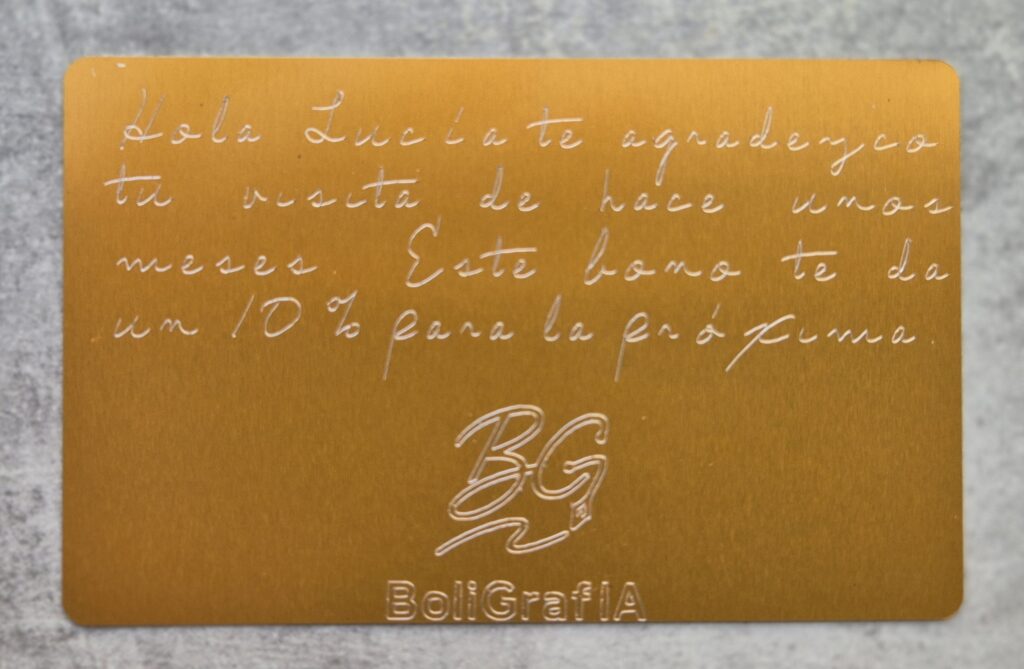 Hola Lucía te agradezco
tu visita de hace unos
meses. Este bono te da
un 10% para la próxima.
BG
BoliGrafIA